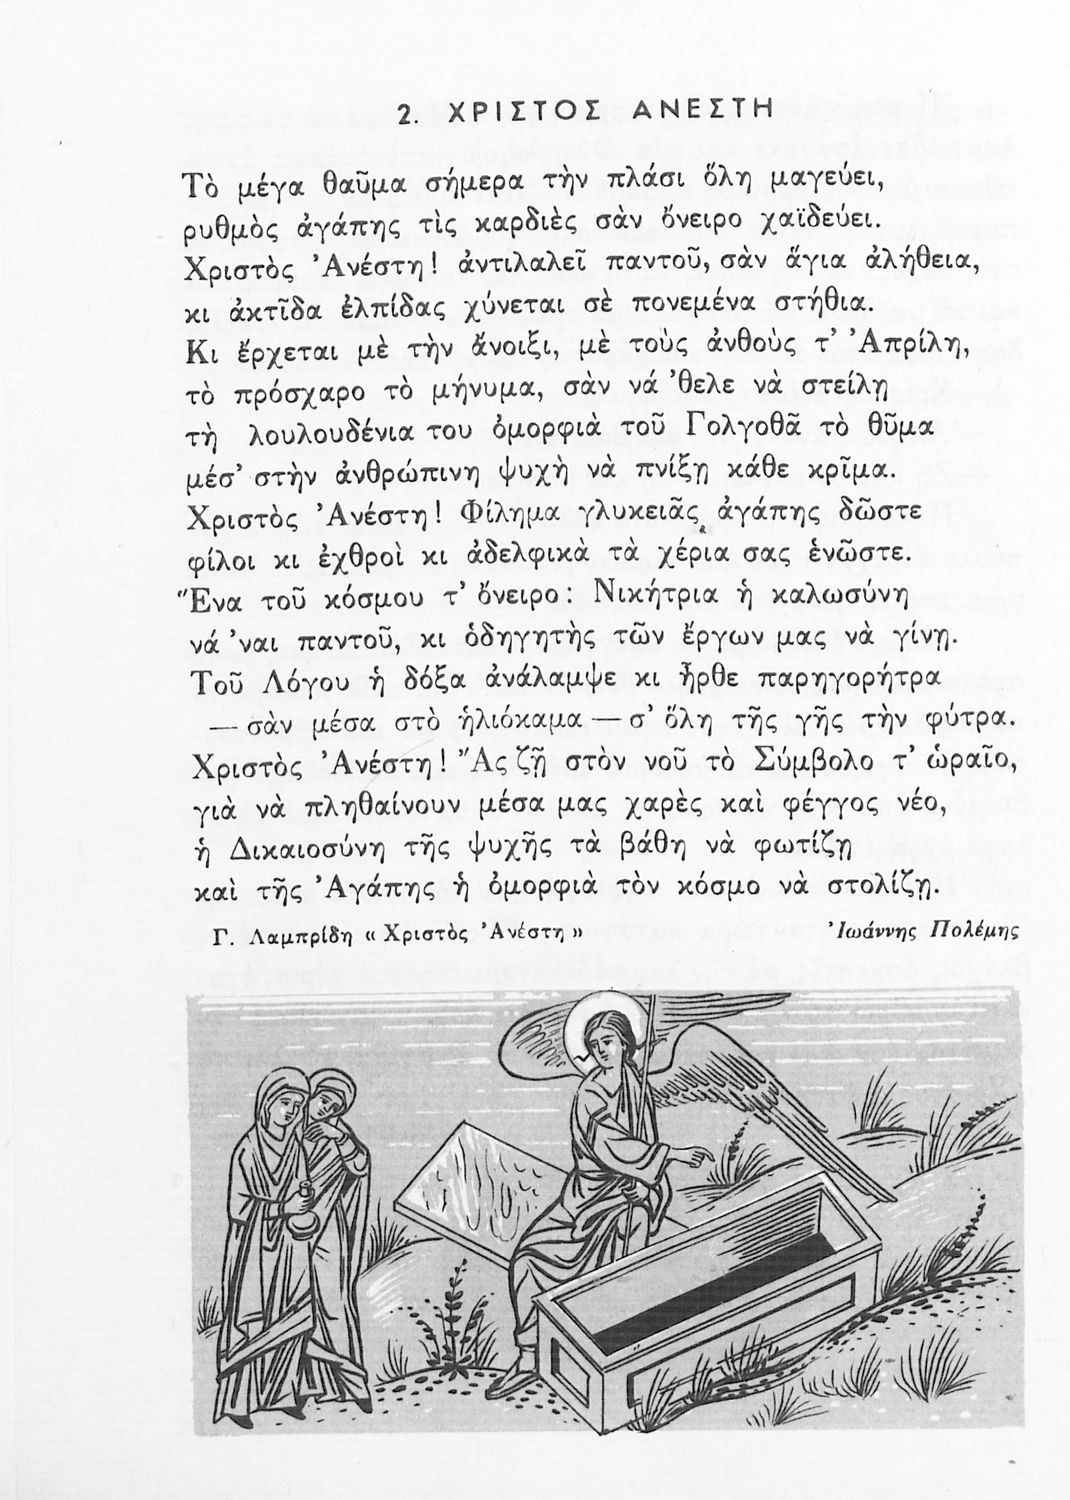 2. ΧΡΙΣΤΟΣ ΑΝΕΣΤΗ
Τὸ μέγα θαῦμα σήμερα τὴν πλάσι ὅλη μαγεύει,
ρυθμὸς ἀγάπης τὶς καρδιὲς σὰν ὄνειρο χαϊδεύει.
Χριστὸς Ἀνέστη! ἀντιλαλεῖ παντοῦ, σὰν ἅγια ἀλήθεια,
κι ἀκτῖδα ἐλπίδας χύνεται σὲ πονεμένα στήθια.
Κι ἔρχεται μὲ τὴν ἄνοιξι, μὲ τοὺς ἀνθοὺς τ' Ἀπρίλη,
τὸ πρόσχαρο τὸ μήνυμα, σὰν νά 'θελε νὰ στείλῃ
τὴ λουλουδένια του ὀμορφιὰ τοῦ Γολγοθᾶ τὸ θῦμα
μέσ' στὴν ἀνθρώπινη ψυχὴ νὰ πνίξῃ κάθε κρῖμα.
Χριστὸς Ἀνέστη! Φίλημα γλυκειᾶς ἀγάπης δῶστε
φίλοι κι ἐχθροὶ κι ἀδελφικὰ τὰ χέρια σας ἑνῶστε.
Ἕνα τοῦ κόσμου τ' ὄνειρο: Νικήτρια ἡ καλωσύνη
νά 'ναι παντοῦ, κι ὁδηγητὴς τῶν ἔργων μας νὰ γίνῃ.
Τοῦ Λόγου ἡ δόξα ἀνάλαμψε κι ἦρθε παρηγορήτρα
— σὰν μέσα στὸ ἡλιόκαμα — σ' ὅλη τῆς γῆς τὴν φύτρα.
Χριστὸς Ἀνέστη! Ἂς ζῇ στὸν νοῦ τὸ Σύμβολο τ' ὡραῖο,
γιὰ νὰ πληθαίνουν μέσα μας χαρὲς καὶ φέγγος νέο,
ἡ Δικαιοσύνη τῆς ψυχῆς τὰ βάθη νὰ φωτίζῃ
καὶ τῆς Ἀγάπης ἡ ὀμορφιὰ τὸν κόσμο νὰ στολίζῃ.
Γ. Λαμπρίδη « Χριστὸς Ἀνέστη » Ἰωάννης Πολέμης